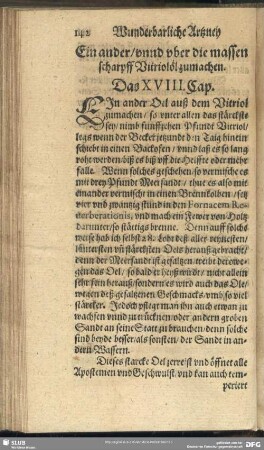 142 Wunderbarliche Artzney
Ein ander/ vnnd vber die massen
scharpff Vitriolöl zumachen.
Das XVIII. Cap.
EIn ander Oel auß dem Vitriol
zumachen/ so vnter allen das stärckste
sey/ nimb fünfftzehen Pfundt Vitriol/
legs wenn der Becker jetzundt den Taig hinein
schiebt in einen Backofen/ vnnd laß es so lang
vohr werden biß es biß vff die Helffte oder mehr
falle. Wenn solches geschehen/ so vermische es
mit drey Pfundt Meersandt/ thue es also mit
einander vermischt in einen Brennkolben/ setz
vier vnd zwantzig stund in den Fornacem Re-
uerberationis, vnd mach ein Fewer von Holtz
darunter/ so stättigs brenne. Denn auff solch
weise hab ich selbst 28. Loht deß aller reynesten/
lautersten vn stärcksten Oels herauß gebracht/
denn der Meersandt ist gesaltzen/ treibt derowe-
gen das Oel/ so bald er heiß würdt/ nicht allein
sehr sem herauß/ sondern es wird auch das Ole/
wegen deß gesaltzenen Geschmacks/ vmb so viel
stärcker. Jedoch pflegt man ihn auch etwan zu
waschen vnnd zu trücknen/ oder andern groben
Sandt an seine Statt zu brauchen/ denn solche
sind beyde besser als sonsten/ der Sandt in an-
dern Wassern.
Dieses starcke Oel zerreist vnd öffnet alle
Apostemen vnd Geschwulst/ vnd kan auch tem-
periert
SLUB
DFG